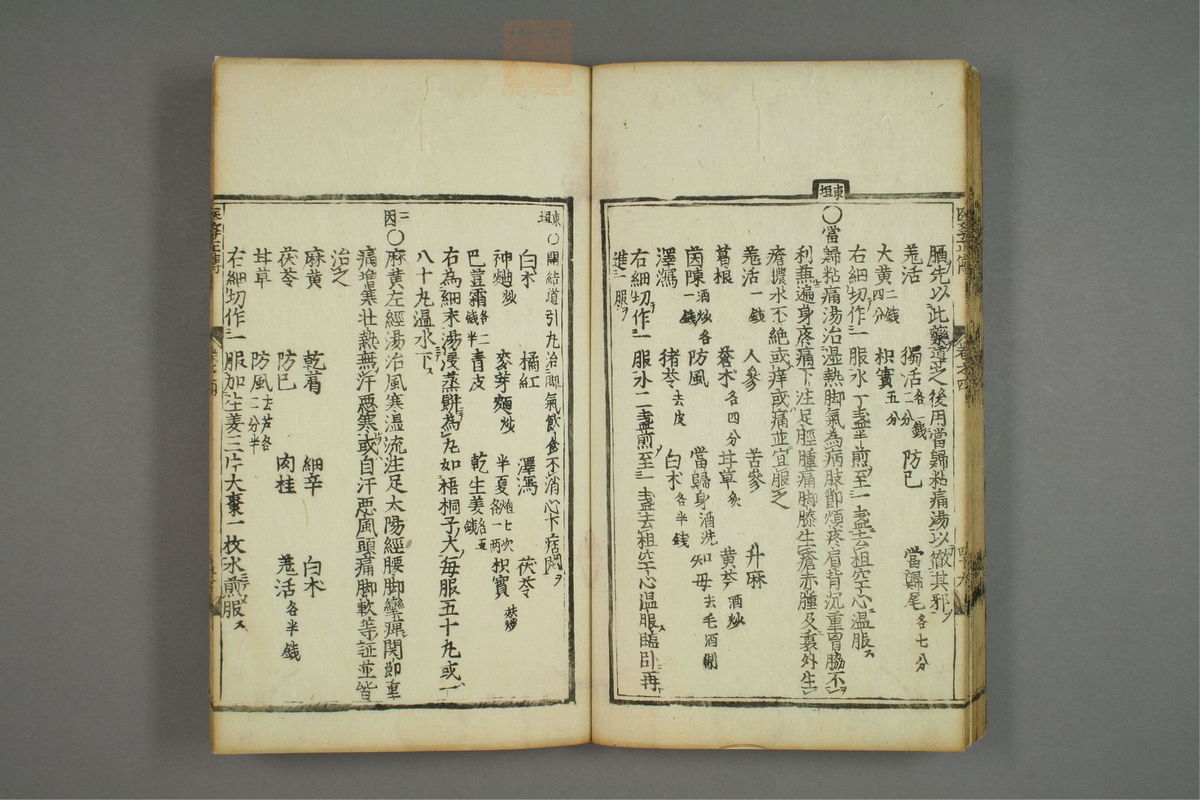 腑先以此藥導之後用當歸粘痛湯以徹其邪
羗活 獨活各一錢二分 防已 當歸尾各七分
大黄二錢四分 枳實五分
右細切作一服水一盞半煎至一盞去柤空心温服
東垣
○當歸粘痛湯治湿熱脚氣為病肢節煩疼肩背沉重胷脇不
利兼遍身疼痛下注足脛腫痛脚膝生瘡赤腫及裏外生
瘡膿水不絶或痒或痛並宜服之
羗活一錢 人參 苦參 升麻
葛根 蒼术各四分 甘草炙 黄芩酒炒
茵陳酒炒各一錢 防風 當歸身酒洗 知母去毛酒
澤瀉 猪苓去皮 白术各半錢
右細切作一服水二盞煎至一盞去柤空心温服臨卧再
進一服
東垣
○開結道引丸治脚氣飲食不消心下痞悶
白术 橘紅 澤瀉 茯苓
神麯炒 麥芽麵炒 半夏炮七次各一兩 枳實麸炒
巴荳霜各二錢半 青皮 乾生姜各五錢
右為細末湯浸蒸餅為丸如梧桐子大每服五十丸或一
八十丸温水下
三因
○麻黄左經湯治風寒湿流注足太陽經腰脚攣痹関節重
痛增寒壮熱無汗惡寒或自汗惡風頭痛脚軟等証並皆
治之
麻黄 乾葛 細辛 白术
茯苓 防已 肉桂 羗活各半錢
甘草 防風去芦各二分半
右細切作一服加生姜三片大棗一枚水煎服